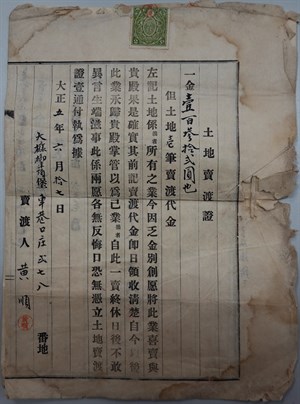 土地賣渡證
一金壹百叁拾貳圓也
但土地壱筆賣渡代金
左記土地係所有之業今因乏金別創愿將此業喜賣與
貴殿果是確實其前記賣渡代金即日領收清楚自今
此業永歸貴殿掌管以為己業自此一賣終休日後不敢
異言生端滋事此係兩愿各無反悔口恐無憑立土地賣渡
證壹通付執為據
大正五年六月拾七日
八番地
賣渡人 黃